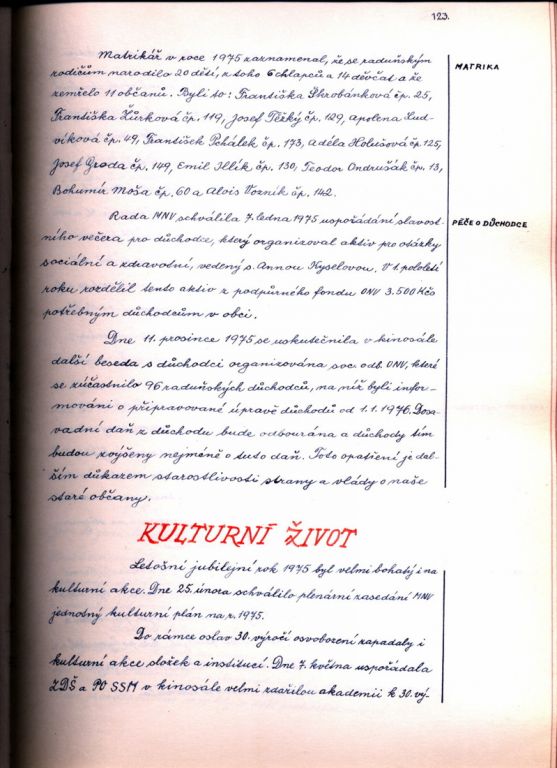 123.
Matrikář v roce 1975 zaznamenal, že se raduňským
MATRIKA
rodičům narodilo 20 dětí, z toho 6 chlapců a 14 děvčat a že
zemřelo 11 občanů. Byli to: Františka Skrobánková čp. 25,
Františka Žůrková čp. 119, Josef Těžký čp. 129, Apolena Lud-
víková čp. 49, František Pchálek čp. 173, Adéla Holušová čp. 125,
Josef Groda čp. 149, Emil Illík čp. 130, Teodor Ondrušák čp. 13,
Bohumír Moša čp. 60 a Alois Vozník čp. 142.
Rada MNV schválila 7. ledna 1975 uspořádání slavost-
PÉČE O DŮCHODCE
ního večera pro důchodce, který organizoval aktiv pro otázky
sociální a zdravotní, vedený s. Annou Kyselovou. V 1. pololetí
roku rozdělil tento aktiv z podpůrného fondu ONV 3.500 Kčs
potřebným důchodcům v obci.
Dne 11. prosince 1975 se uskutečnila v kinosále
další beseda s důchodci organizována soc. odb. ONV, které
se zúčastnilo 96 raduňských důchodců, na níž byli infor-
mováni o připravované úpravě důchodů od 1.1.1976. Dosa-
vadní daň z důchodu bude odbourána a důchody tím
budou zvýšeny nejméně o tuto daň. Toto opatření je dal-
ším důkazem starostlivosti strany a vlády o naše
staré občany.
KULTURNÍ ŽIVOT
Letošní jubilejní rok 1975 byl velmi bohatý i na
kulturní akce. Dne 25. února schválilo plenární zasedání MNV
jednotný kulturní plán na r. 1975.
Do rámce oslav 30. výročí osvobození zapadaly i
kulturní akce složek a institucí. Dne 7. května uspořádala
ZDŠ a PO SSM v kinosále velmi zdařilou akademii k 30. vý-